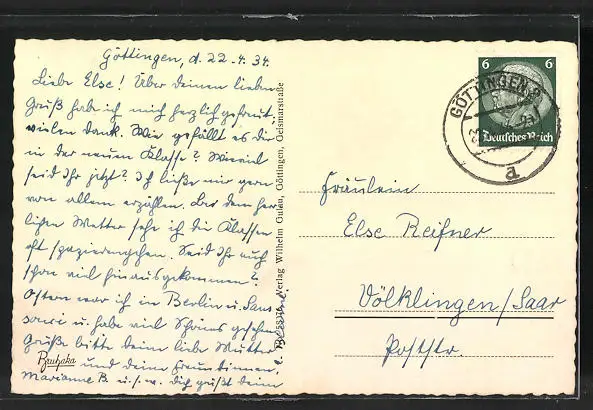 Göttingen, d. 22.4.34.
Liebe Else! Über deinen lieben
Gruß hab ich mich herzlich gefreut.
vielen Dank. Wie gefällt es dir
in der neuen Klasse? Wieviel
seid Ihr jetzt? Ich ließe mir gern
von allem erzählen. Bei dem herr
lichen Wetter sehe ich die Klassen
oft spazierengehen. Seid Ihr auch
schon viel hinausgekommen?
Ostern war ich in Berlin u. Sans
souci u. habe viel Schönes gesehen.
Grüße bitte deine liebe Mutter
und deine Freundinnen,
Marianne B. u.s.w. Dich grüßt deine
Bruhaka
Verlag Wilhelm Gudau, Göttingen, Geismarstraße
6 6
Deutsches Reich
GÖTTINGEN 2
a
Fräulein
Else Reifner
Völklingen/Saar
Poststr.